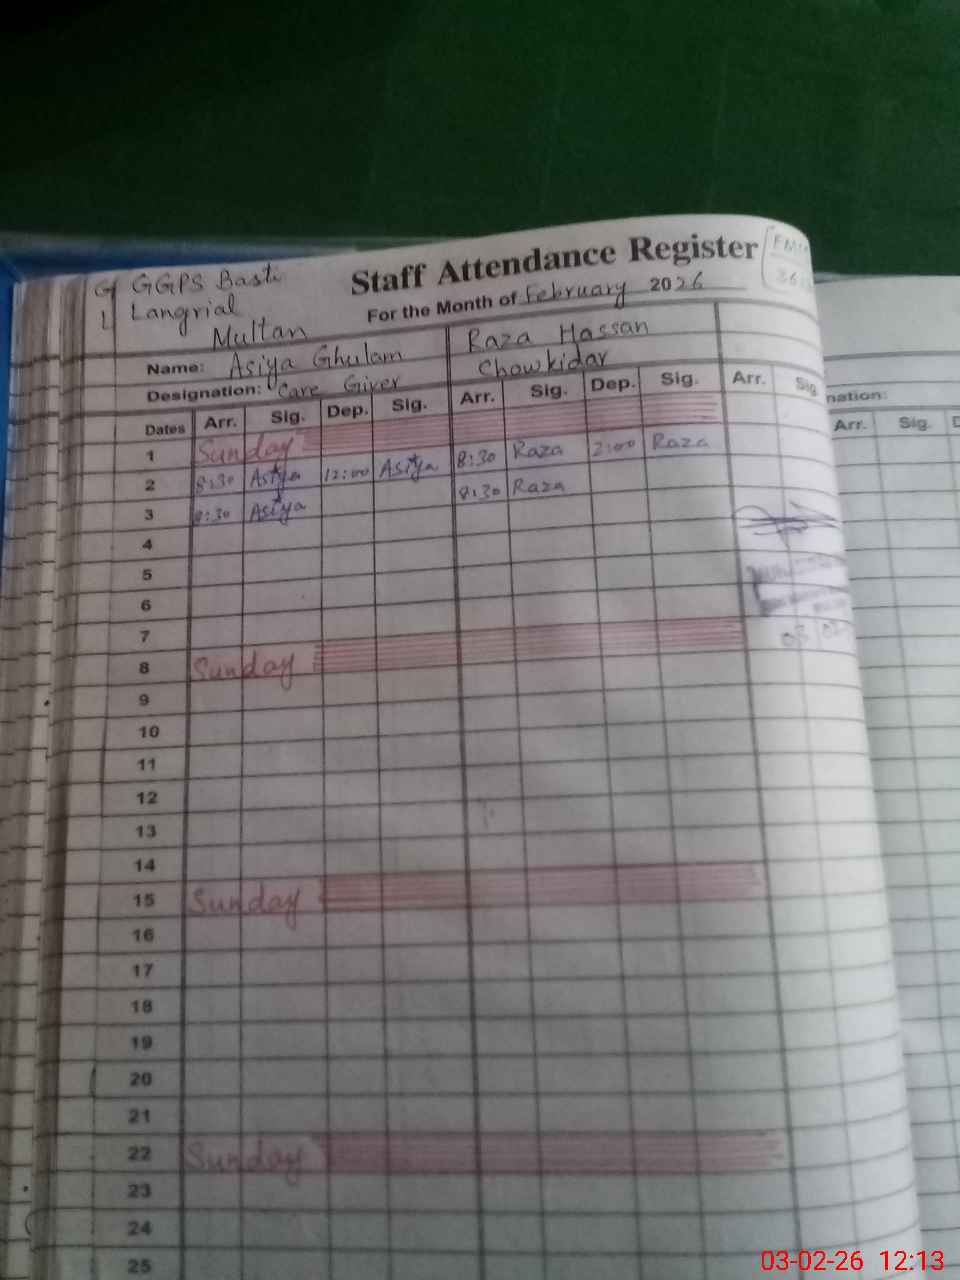 GGPS Basti
Langrial
Multan
Staff Attendance Register
For the Month of February 2026
Name: Asiya Ghulam Raza Hassan
Designation: Care Giver Chowkidar
Dates Arr. Sig. Dep. Sig. Arr. Sig. Dep. Sig. Arr. Sig.
1 Sunday
2 8:30 Asiya 12:00 Asiya 8:30 Raza 2:00 Raza
3 8:30 Asiya 8:30 Raza
4
5
6
7
8 Sunday
9
10
11
12
13
14
15 Sunday
16
17
18
19
20
21
22 Sunday
23
24
25
nation:
Arr. Sig. D
03-02-26 12:13